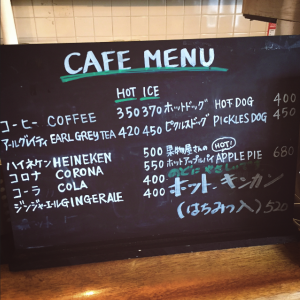 CAFE MENU
HOT ICE
コーヒー COFFEE 350 370 ホットドッグ HOT DOG 400
アールグレイティ EARL GREY TEA 420 450 ピクルスドッグ PICKLES DOG 450
ハイネケン HEINEKEN 500 果物屋さんの HOT!
コロナ CORONA 550 ホットアップルパイ APPLE PIE 680
コーラ COLA 400 のどにやさしい
ジンジャーエール GINGERALE 400 ホット・キンカン
(はちみつ入) 520